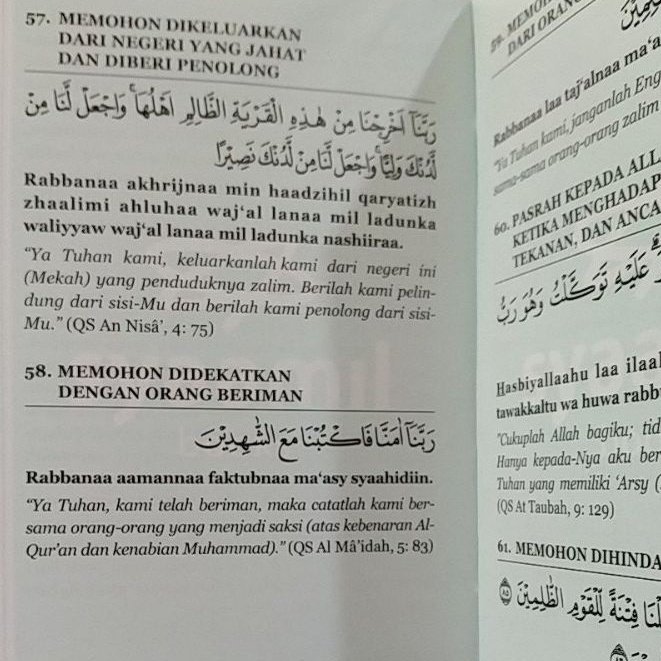 57. MEMOHON DIKELUARKAN
DARI NEGERI YANG JAHAT
DAN DIBERI PENOLONG
رَبَّنَآ اَخْرِجْنَا مِنْ هٰذِهِ الْقَرْيَةِ الظَّالِمِ اَهْلُهَاۚ وَاجْعَلْ لَّنَا مِنْ
لَّدُنْكَ وَلِيًّاۚ وَاجْعَلْ لَّنَا مِنْ لَّدُنْكَ نَصِيْرًا
Rabbanaa akhrijnaa min haadzihil qaryatizh
zhaalimi ahluhaa waj‘al lanaa mil ladunka
waliyyaw waj‘al lanaa mil ladunka nashiiraa.
“Ya Tuhan kami, keluarkanlah kami dari negeri ini
(Mekah) yang penduduknya zalim. Berilah kami pelin-
dung dari sisi-Mu dan berilah kami penolong dari sisi-
Mu.” (QS An Nisâ’, 4: 75)
58. MEMOHON DIDEKATKAN
DENGAN ORANG BERIMAN
رَبَّنَآ اٰمَنَّا فَاكْتُبْنَا مَعَ الشّٰهِدِيْنَ
Rabbanaa aamannaa faktubnaa ma‘asy syaahidiin.
“Ya Tuhan, kami telah beriman, maka catatlah kami ber-
sama orang-orang yang menjadi saksi (atas kebenaran Al-
Qur’an dan kenabian Muhammad).” (QS Al Mâ’idah, 5: 83)
59. MEMOHON
DARI ORANG
Rabbanaa laa taj‘alnaa ma‘a
“Ya Tuhan kami, janganlah Eng
sama-sama orang-orang zalim
60. PASRAH KEPADA ALLA
KETIKA MENGHADAP
TEKANAN, DAN ANCA
عَلَيْهِ تَوَكَّلْتُ وَهُوَ رَبُّ
Hasbiyallaahu laa ilaa
tawakkaltu wa huwa rabb
“Cukuplah Allah bagiku; tid
Hanya kepada-Nya aku ber
Tuhan yang memiliki ‘Arsy (
(QS At Taubah, 9: 129)
61. MEMOHON DIHINDA
فِتْنَةً لِّلْقَوْمِ الظّٰلِمِيْنَ